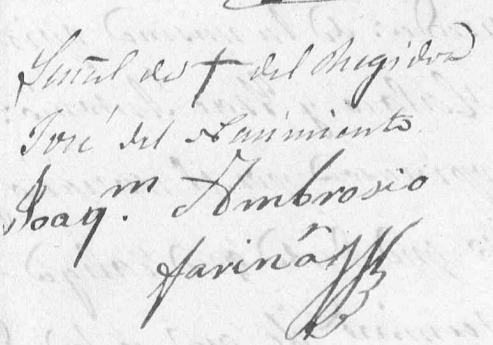 Señal de † del Regidor
José del Nacimiento
Joaq.m Ambrosio
Farinãʳ